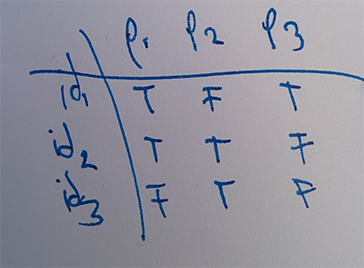 id ρ1 ρ2 ρ3
id1 T F T
id2 T T F
id3 F T F